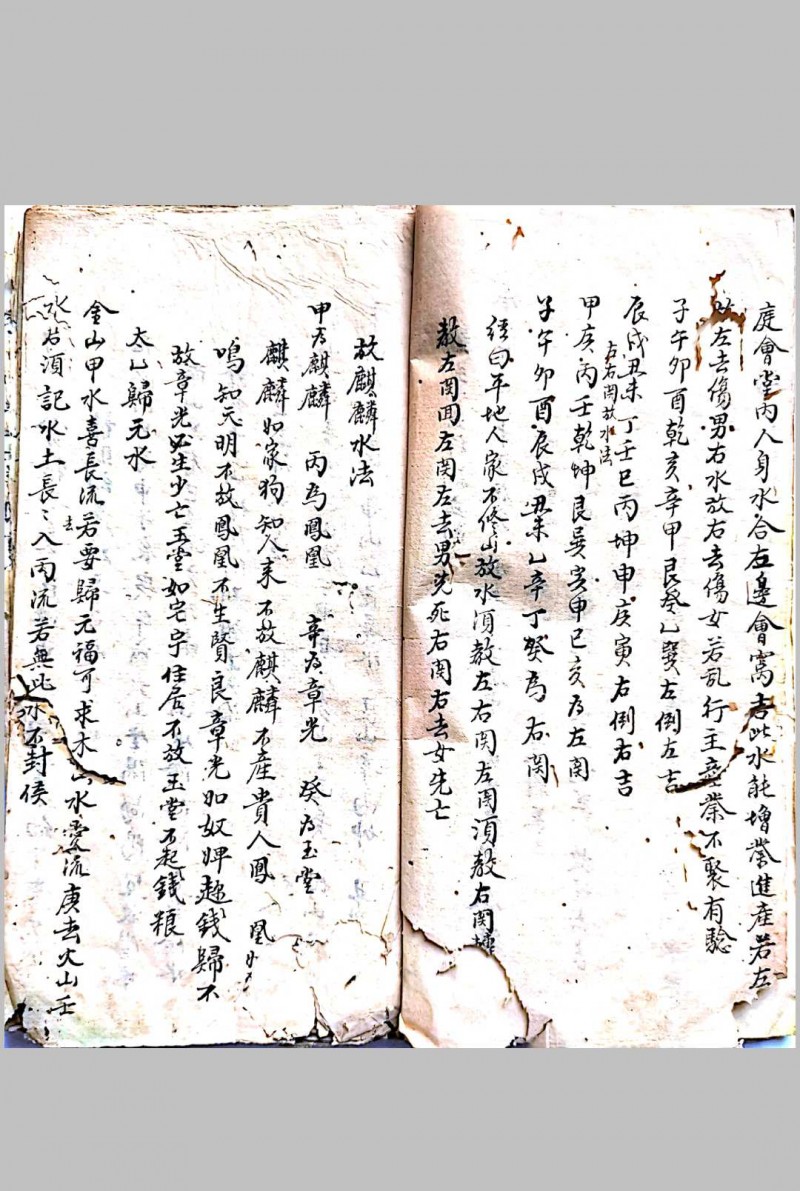 庭會堂內人身水合左邊會窩去此水能增業進產若左
左去傷男右水放右去傷女若乱行主產業不聚有驗
子午卯酉乾亥辛甲艮癸乙巽左倒左吉
辰戌丑未丁壬巳丙坤申庚寅右倒右吉
左右関放水法
甲庚丙壬乾坤艮巽寅申巳亥为左関
子午卯酉辰戌丑未乙辛丁癸為右関
経曰平地人家不修山放水須教左右関左関須教右関
教左関回左関左去男先死右関右去女先亡
放麒麟水法
甲为麒麟 丙為鳳凰 辛为章光 癸为玉堂
麒麟如家狗知人来不放麒麟不產貴人鳳凰如
鳴知天明不放鳳凰不生賢良章光如奴婢趁錢歸不
放章光必生少亡玉堂如宅宇住居不放玉堂不起錢粮
太乙歸元水
金山甲水喜長流若要歸元福可求木山水愛流庚去火山壬
水君須記水土長〻入丙流若無此水不封侯
去